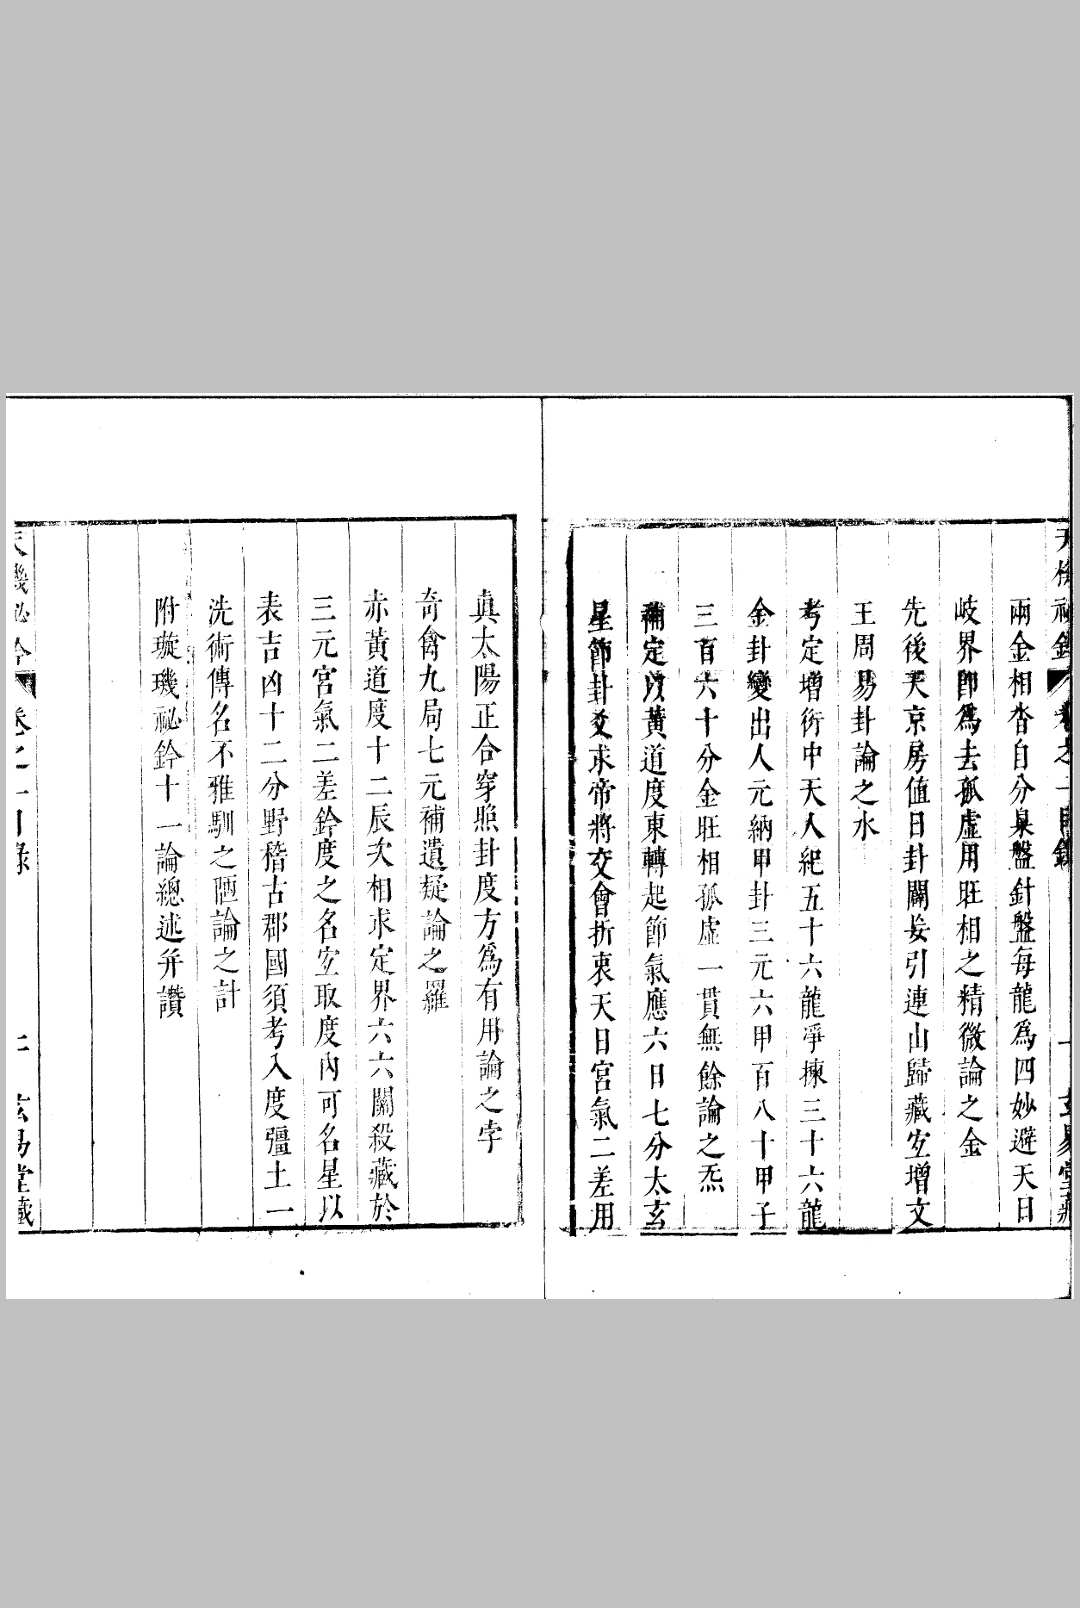 兩金相沓自分臬盤針盤每龍爲四妙避天日
岐界卽爲去孤虛用旺相之精微論之金
先後天京房值日卦闢妄引連山歸藏宓增文
王周易卦論之水
考定增衍中天人紀五十六龍淨揀三十六龍
金卦變出人元納甲卦三元六甲百八十甲子
三百六十分金旺相孤虛一貫無餘論之炁
補定以黃道度東轉起節氣應六日七分太玄
星節卦爻求帝將交會折衷天日宮氣二差用
眞太陽正合穿照卦度方爲有用論之孛
奇禽九局七元補遺疑論之羅
赤黃道度十二辰次相求定界六六關殺藏於
三元宮氣二差鈐度之名宓取度內可名星以
表吉凶十二分野稽古郡國須考入度彊土一
洗術傳名不雅馴之陋論之計
附璇璣祕鈐十一論總述并讚
卷之一目錄
玄易堂藏